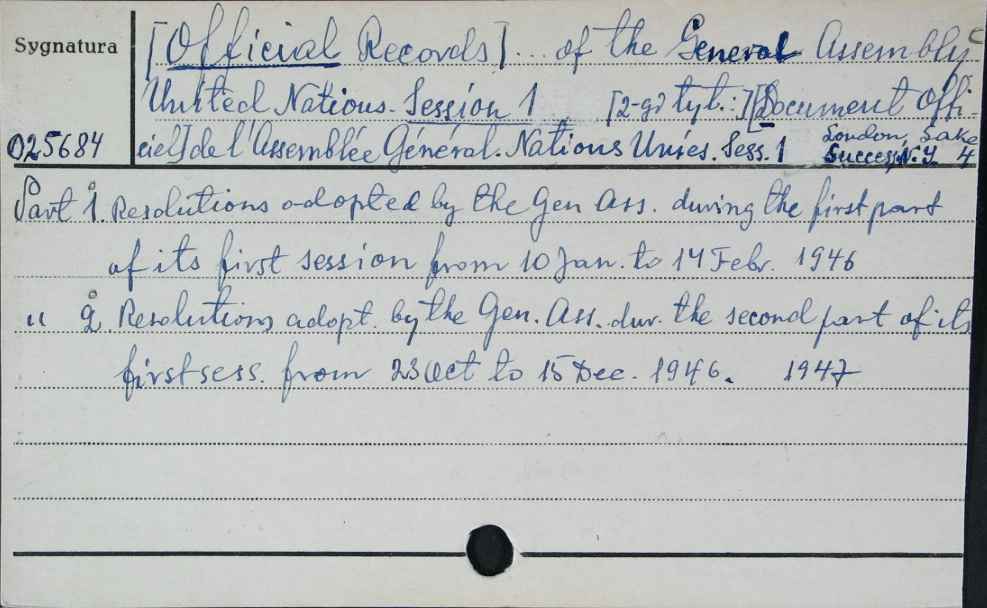 Sygnatura
025684
[Official Records] ... of the General Assembly
United Nations. Session 1 [2-gi tyt.:] [Document offi-
ciel] de l'Assemblée Général. Nations Unies. Sess. 1 London, Lake
Success, N.Y. 4
Part 1. Resolutions adopted by the Gen Ass. during the first part
of its first session from 10 Jan. to 14 Febr. 1946
" 2. Resolutions adopt. by the Gen. Ass. dur. the second part of its
first sess. from 23 Oct to 15 Dec. 1946. 1947